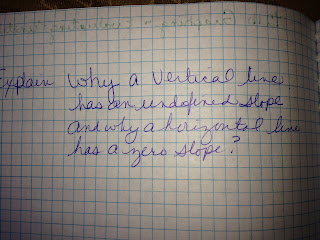 Explain Why a Vertical line
has an undefined slope
and why a horizontal line
has a zero slope?